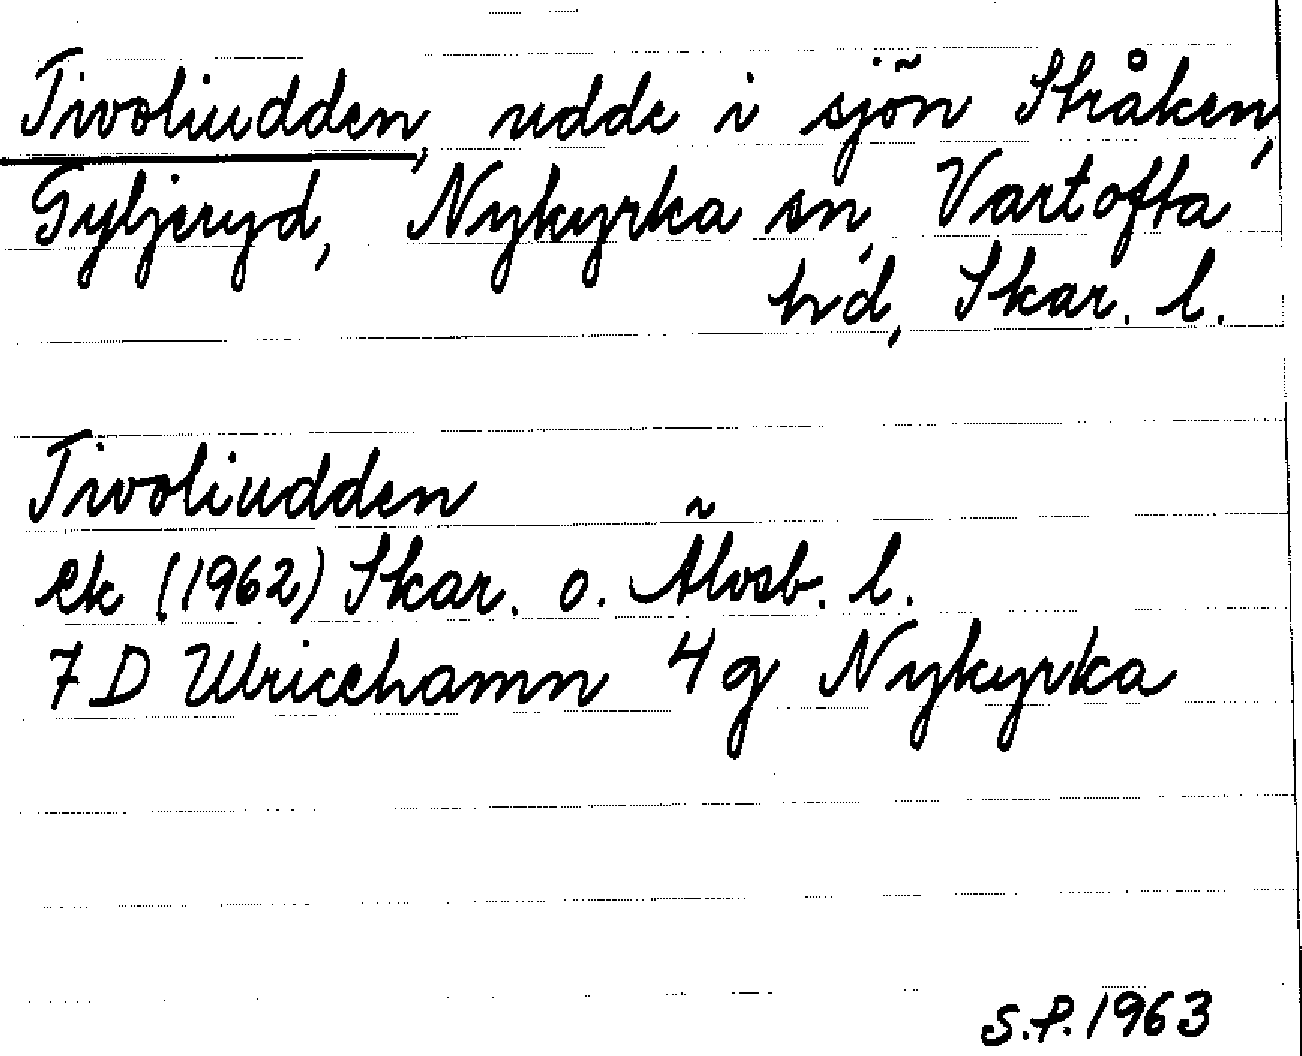 Tivoliudden, udde i sjön Stråken,
Gyljeryd, Nykyrka sn, Vartofta
hd, Skar. l.
Tivoliudden
ek (1962) Skar. o. Älvsb. l.
7 D Ulricehamn 4 g Nykyrka
S.P. 1963